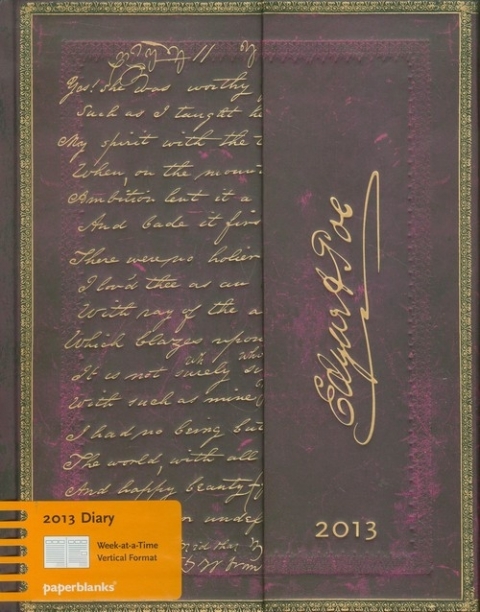 Yes! she was worthy
Such as I taught he
My spirit with the t
When, on the moun
Ambition lent it a
And bade it firs
There were no holier
I lov'd thee as an
With ray of the a
Which blazes upon
It is not surely si
With such as mine
I had no being but
The world, with all
And happy beauty f
undef
Edgar A Poe
2013
2013 Diary
Week-at-a-Time
Vertical Format
paperblanks®